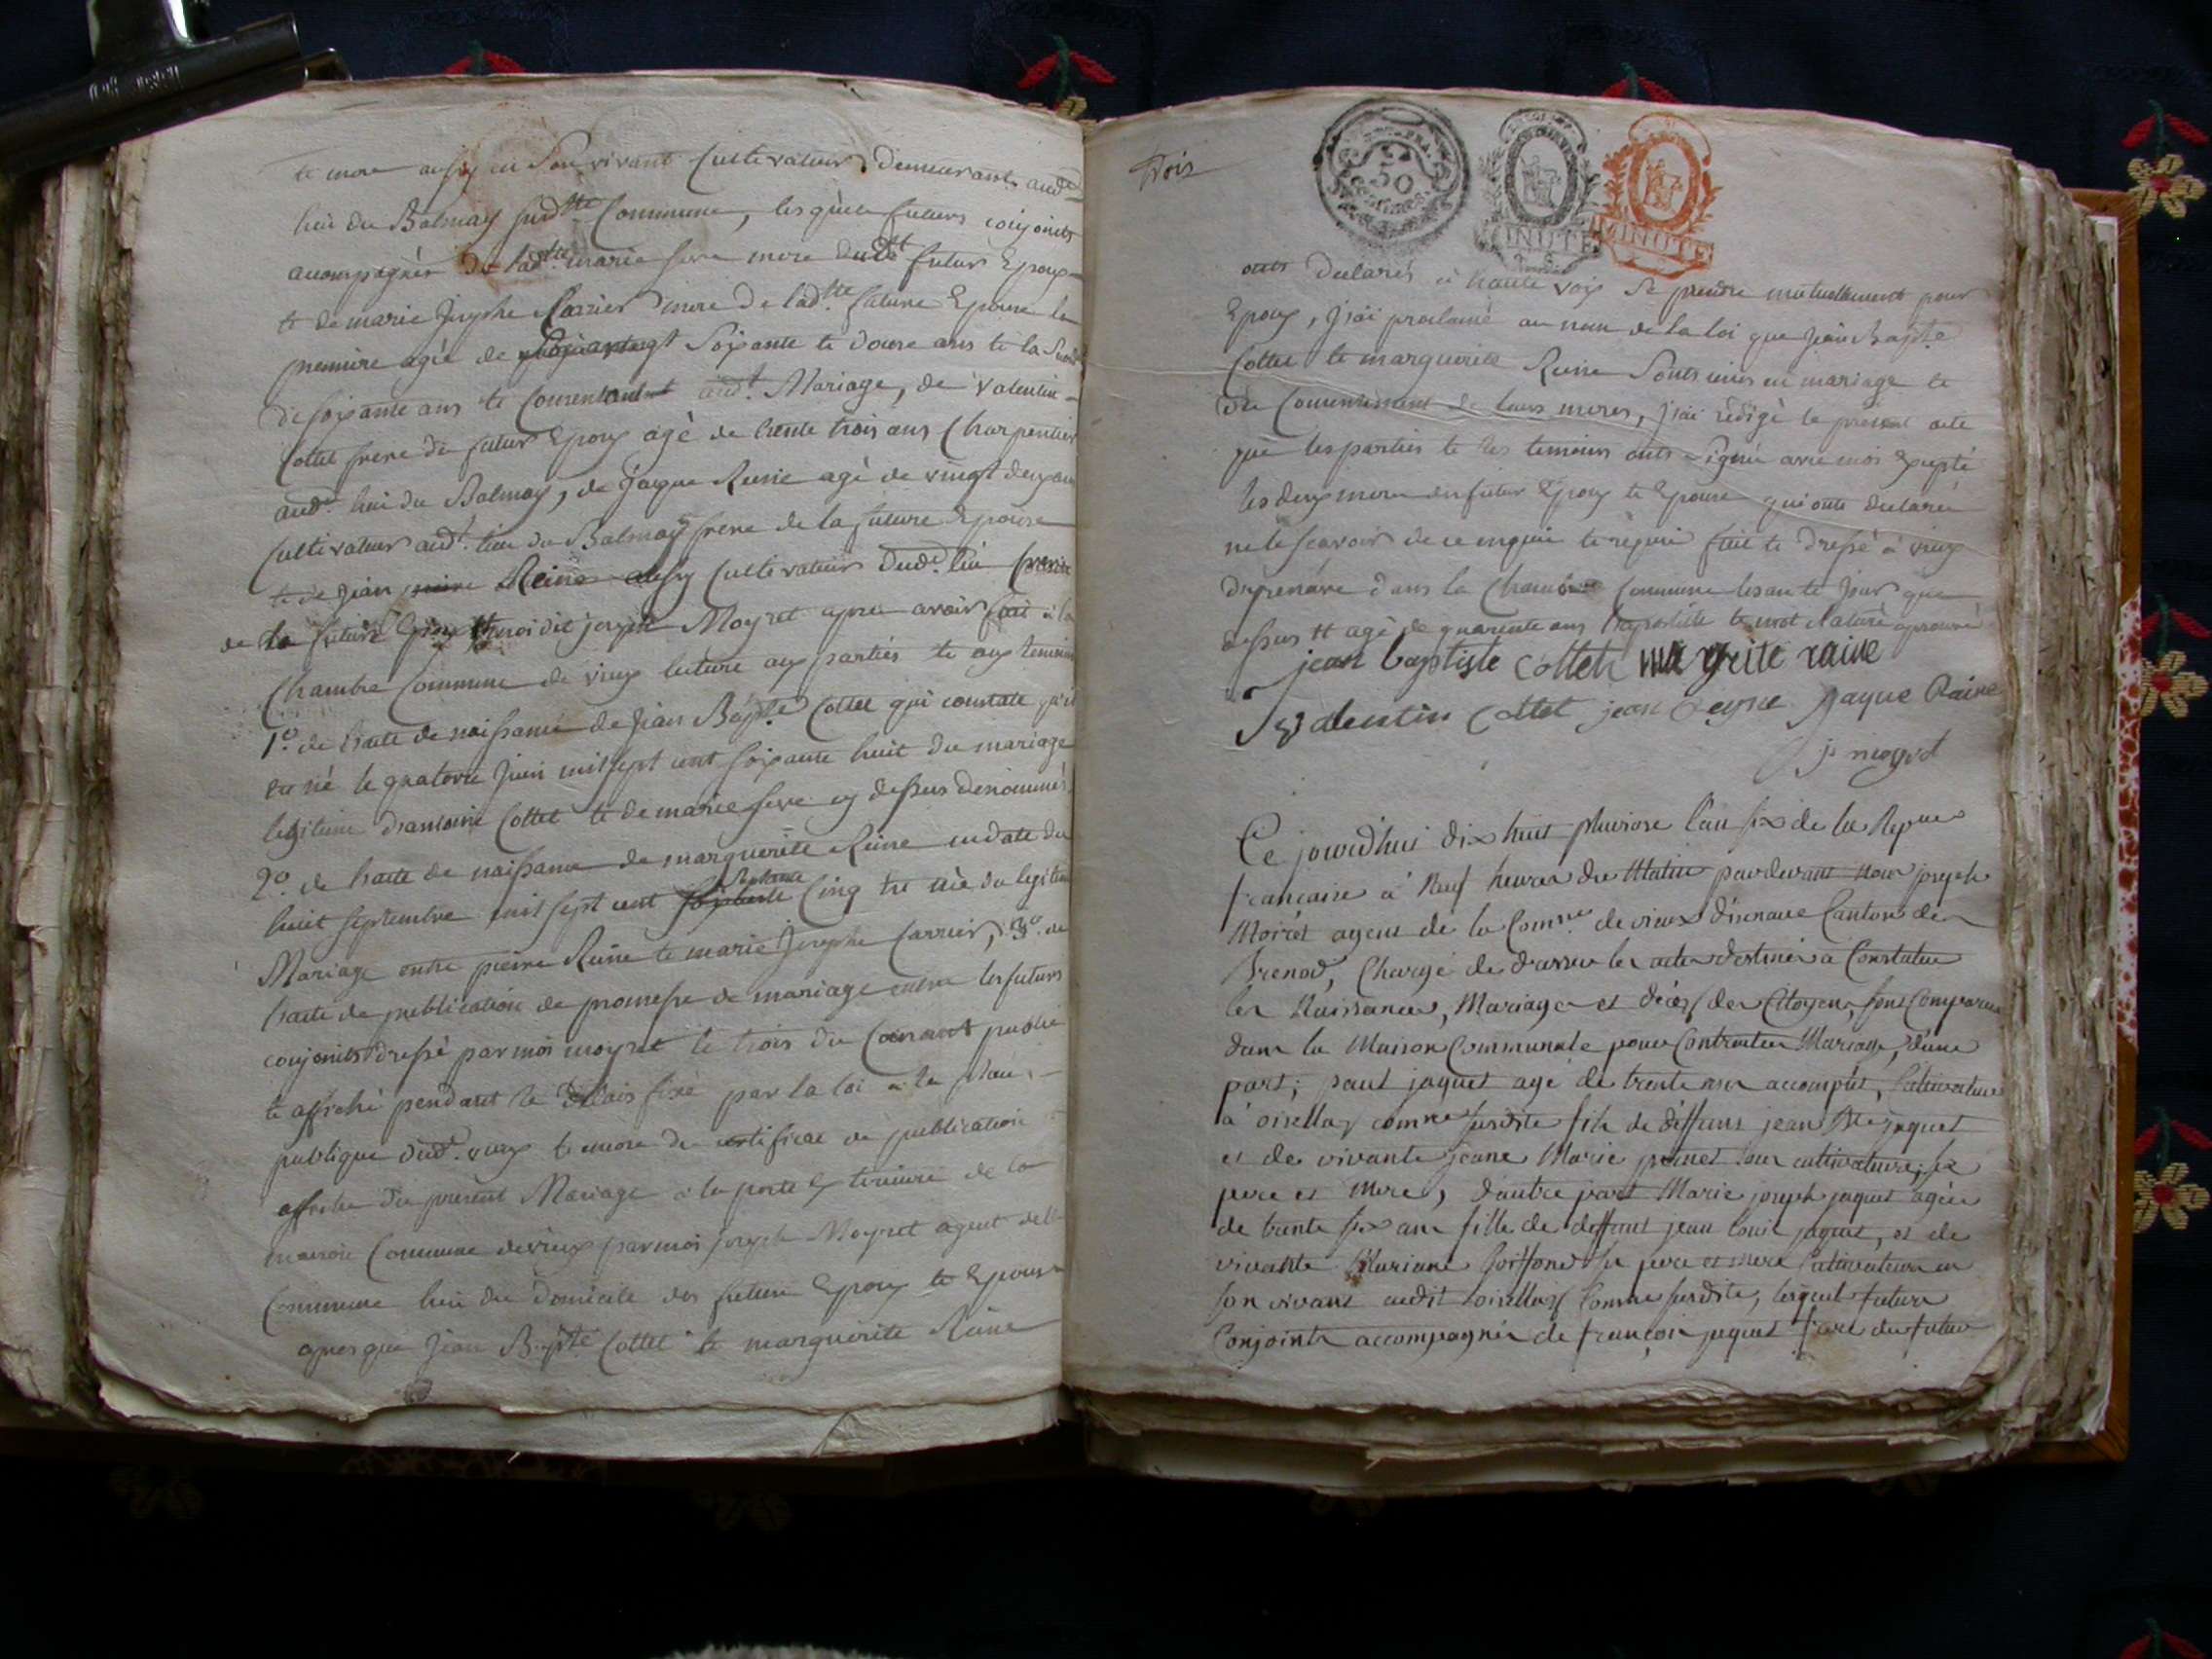 et mere aussy en Son vivant Cultivateurs Demeurants aud.
lieu du Balmay susd.tte Commune, lesquels futurs conjoints
acompagnés de lad.tte marie serre mere dud.t futur Epoux
et de marie Josephe Carrier mere de lad.tte future Epouse la
premiere agée de Soixante et douze ans et la Seconde
de soixante ans et Consentantes aud.t Mariage, de Valentin
Cottet frere du futur Epoux agé de trente trois ans Charpentier
aud.t lieu du Balmay, de Jaque Reine agé de vingt deux ans
Cultivateur aud.t lieu du Balmay frere de la future Epouse
et de Jean Reine aussy Cultivateur dud.t lieu
de la future Epouse moi dit joseph Moyret apres avoir fait à la
Chambre Commune de vieux lecture aux parties et aux temoins
1.o de l'acte de naissance de Jean Bap.te Cottet qui constate qu'il
est né le quatorze Juin mil sept cent soixante huit du mariage
legitime d'antoine Cottet et de marie serre cy dessus denommés
2.o de l'acte de naissance de marguerite Reine en date du
huit septembre mil sept cent septante Cinq et née du legitime
Mariage entre pierre Reine et marie Josephe Carrier, 3.o de
l'acte de publication de promesse de mariage entre les futurs
conjoints dressé par moi moyret le trois du Courant publié
et affiché pendant le delais fixé par la loi à la place
publique dud.t vieux et encore du certificat de publication
affiche du present Mariage à la porte exterieure de la
maison Commune de vieux par moi joseph Moyret agent de la
Commune lieu du domicile des futurs Epoux et Epouse
apres que Jean Bap.te Cottet et marguerite Reine
Trois
50
Centimes
MINUTE
MINUTE
onts declarés à haute voix se prendre mutuellement pour
Epoux, j'ai proclamé au nom de la loi que Jean bap.te
Cottet et marguerite Reine Sonts unis en mariage et
du Consentement de leurs meres, j'ai rédigé le présent acte
que les parties et les temoins onts signé avec moi Excepté
les deux meres du futur Epoux et Epouse qui onts declarées
ne le scavoir de ce enquis et requis fait et dressé à vieux
d'izenave dans la Chambre Commune les an et Jour que
dessus agé de quarente ans l'apostille et mot aprouvé
jean baptiste cottet margreite raine
valentin cottet jean Reyne Jaque Raine
js moyret
Ce jourd'hui dix huit pluviose l'an six de la Repue
francaise à Neuf heures du Matin pardevant nous joseph
Moiret agent de la Comne. de vieux d'izenave Canton de
Brenod, Chargé de dresser les actes destinés à Constater
les Naissances, Mariages et décés des Citoyens, sont Comparus
dans la Maison Communale pour Contracter Mariage, d'une
part; paul jaquet agé de trente ans accomplis, Cultivateur
à oisellaz comne susdite fils de deffunt jean jaquet
et de vivante jeane Marie cultivateurs, ses
pere et mere, d'autre part Marie joseph jaquet agée
de trente six ans fille de deffunt jean louis jaquet, et de
vivante Mariane ses pere et mere Cultivateurs en
son vivant audit oisellaz Comne susdite, lesquels futurs
Conjoints accompagnés de françois jaquet frere du futur